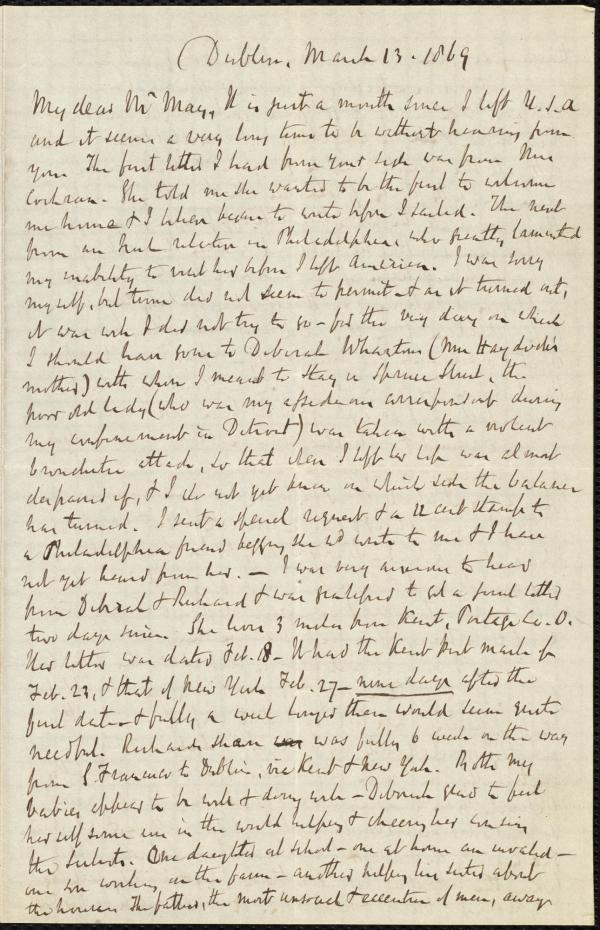 Dublin, March 13. 1869
My dear Mr May, It is just a month since I left U.S.A
and it seems a very long time to be without hearing from
you. The first letter I had from your side was from Mrs
Cochran. She told me she wanted to be the first to welcome
me home & I believe began to write before I sailed. The next
from an Irish relative in Philadelphia, who greatly lamented
my inability to visit her before I left America. I was sorry
myself, but time did not seem to permit & as it turned out,
it was well I did not try to go - for the very day on which
I should have gone to Deborah Whartons (Mrs Haydock's
mother) with whom I meant to stay in Spruce Street, the
poor old lady (who was my affectionate correspondent during
my confinement in Detroit) was taken with a violent
bronchitic attack, so that when I left her life was almost
despaired of, & I do not yet know on which side the balance
has turned. I sent a special request & a 12 cent stamp to
a Philadelphia friend begging she wd write to me & I have
not yet heard from her. - I was very anxious to hear
from Deborah & Richard & was gratified to get a first letter
two days since. She lives 3 miles from Kent, Portage Co. O.
Her letter was dated Feb. 18 - It had the Kent post mark for
Feb. 23, & that of New York Feb. 27 - nine days after the
first date - & fully a week longer than would seem quite
needful. Richards was fully 6 weeks on the way
from S. Francisco to Dublin, via Kent & New York. Both my
babies appear to be well & doing well - Deborah glad to feel
herself some use in the world helping & cheering her cousins
the . One daughter at school - one at home an invalid -
one son working on the farm - another helping his sister about
the house. The father, the most unsocial & eccentric of men, away